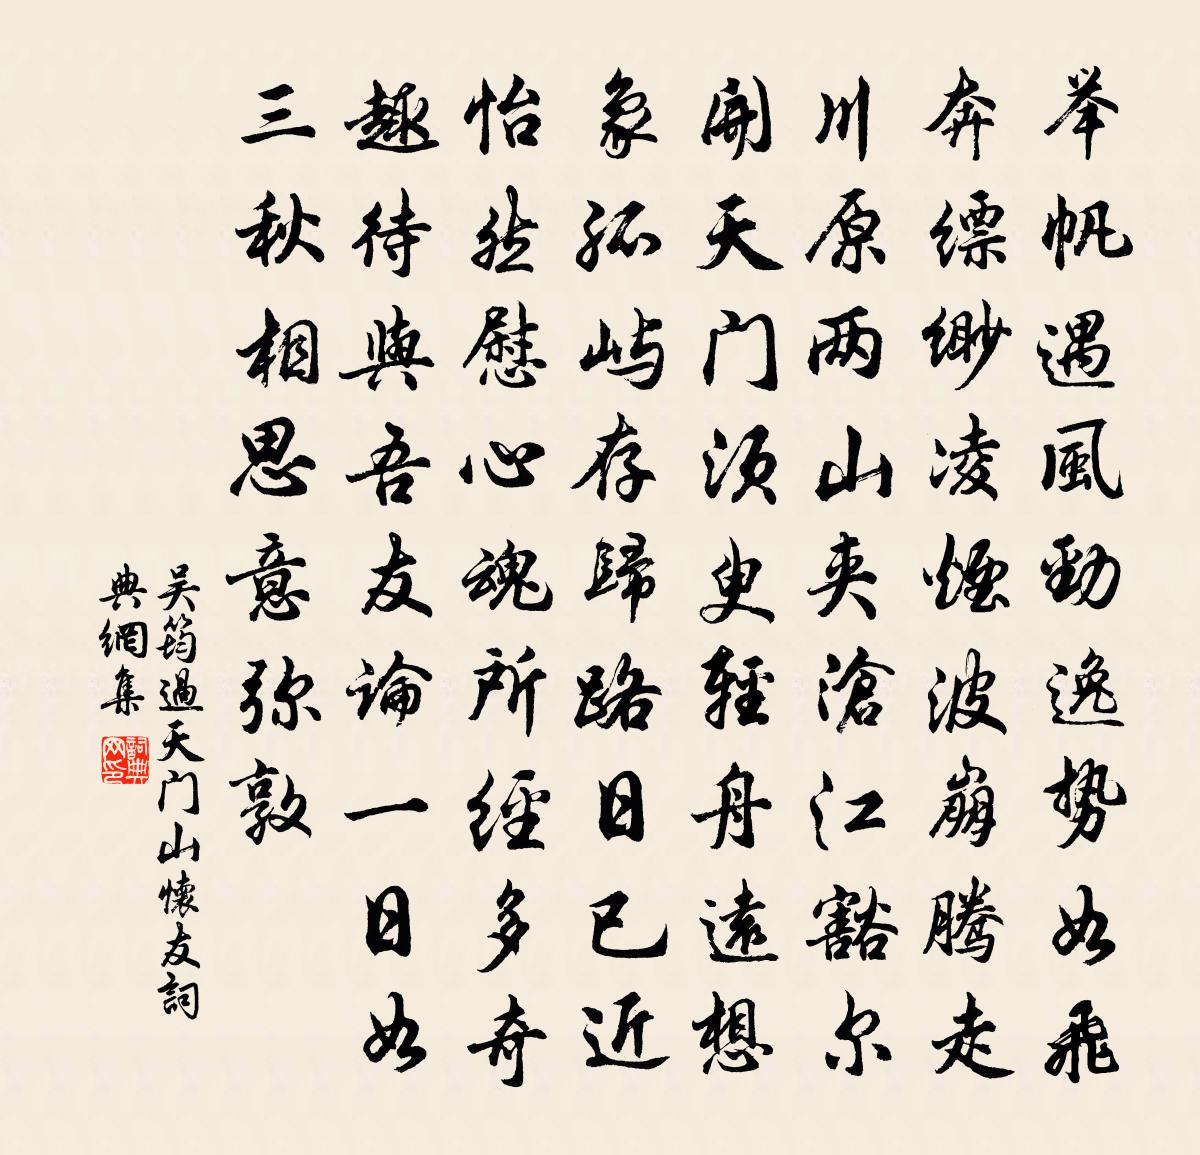 举帆遇風勁逸势如飛
奔缥缈凌煙波崩腾走
川原两山夹滄江豁尔
開天门须臾輕舟遠想
象孤屿存歸路日已近
怡然慰心魂所經多奇
趣待與吾友論一日如
三秋相思意弥敦
吴筠過天门山懷友詞
典網集
詞典网印